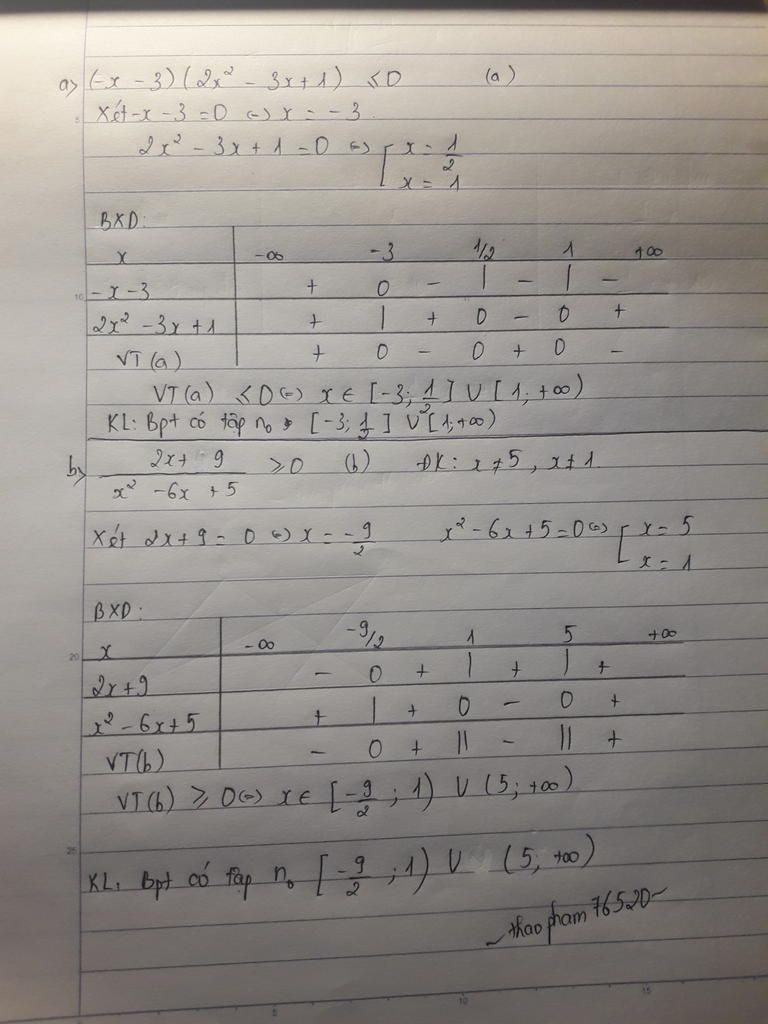 a> (-x - 3)(2x² - 3x + 1) ≤ 0 (a)
Xét -x - 3 = 0 ⇔ x = -3
2x² - 3x + 1 = 0 ⇔ [ x = 1/2
x = 1
BXD:
x -∞ -3 1/2 1 +∞
-x - 3 + 0 - | - | -
2x² - 3x + 1 + | + 0 - 0 +
VT(a) + 0 - 0 + 0 -
VT(a) ≤ 0 ⇔ x ∈ [-3; 1/2] ∪ [1; +∞)
KL: Bpt có tập n₀ [-3; 1/2] ∪ [1; +∞)
b> (2x + 9)/(x² - 6x + 5) ≥ 0 (b) ĐK: x ≠ 5, x ≠ 1
Xét 2x + 9 = 0 ⇔ x = -9/2 x² - 6x + 5 = 0 ⇔ [ x = 5
x = 1
BXD:
x -∞ -9/2 1 5 +∞
2x + 9 - 0 + | + | +
x² - 6x + 5 + | + 0 - 0 +
VT(b) - 0 + || - || +
VT(b) ≥ 0 ⇔ x ∈ [-9/2; 1) ∪ (5; +∞)
KL: Bpt có tập n₀ [-9/2; 1) ∪ (5; +∞)
~ thao pham 76520 ~
5
10
20
25
5 10 15